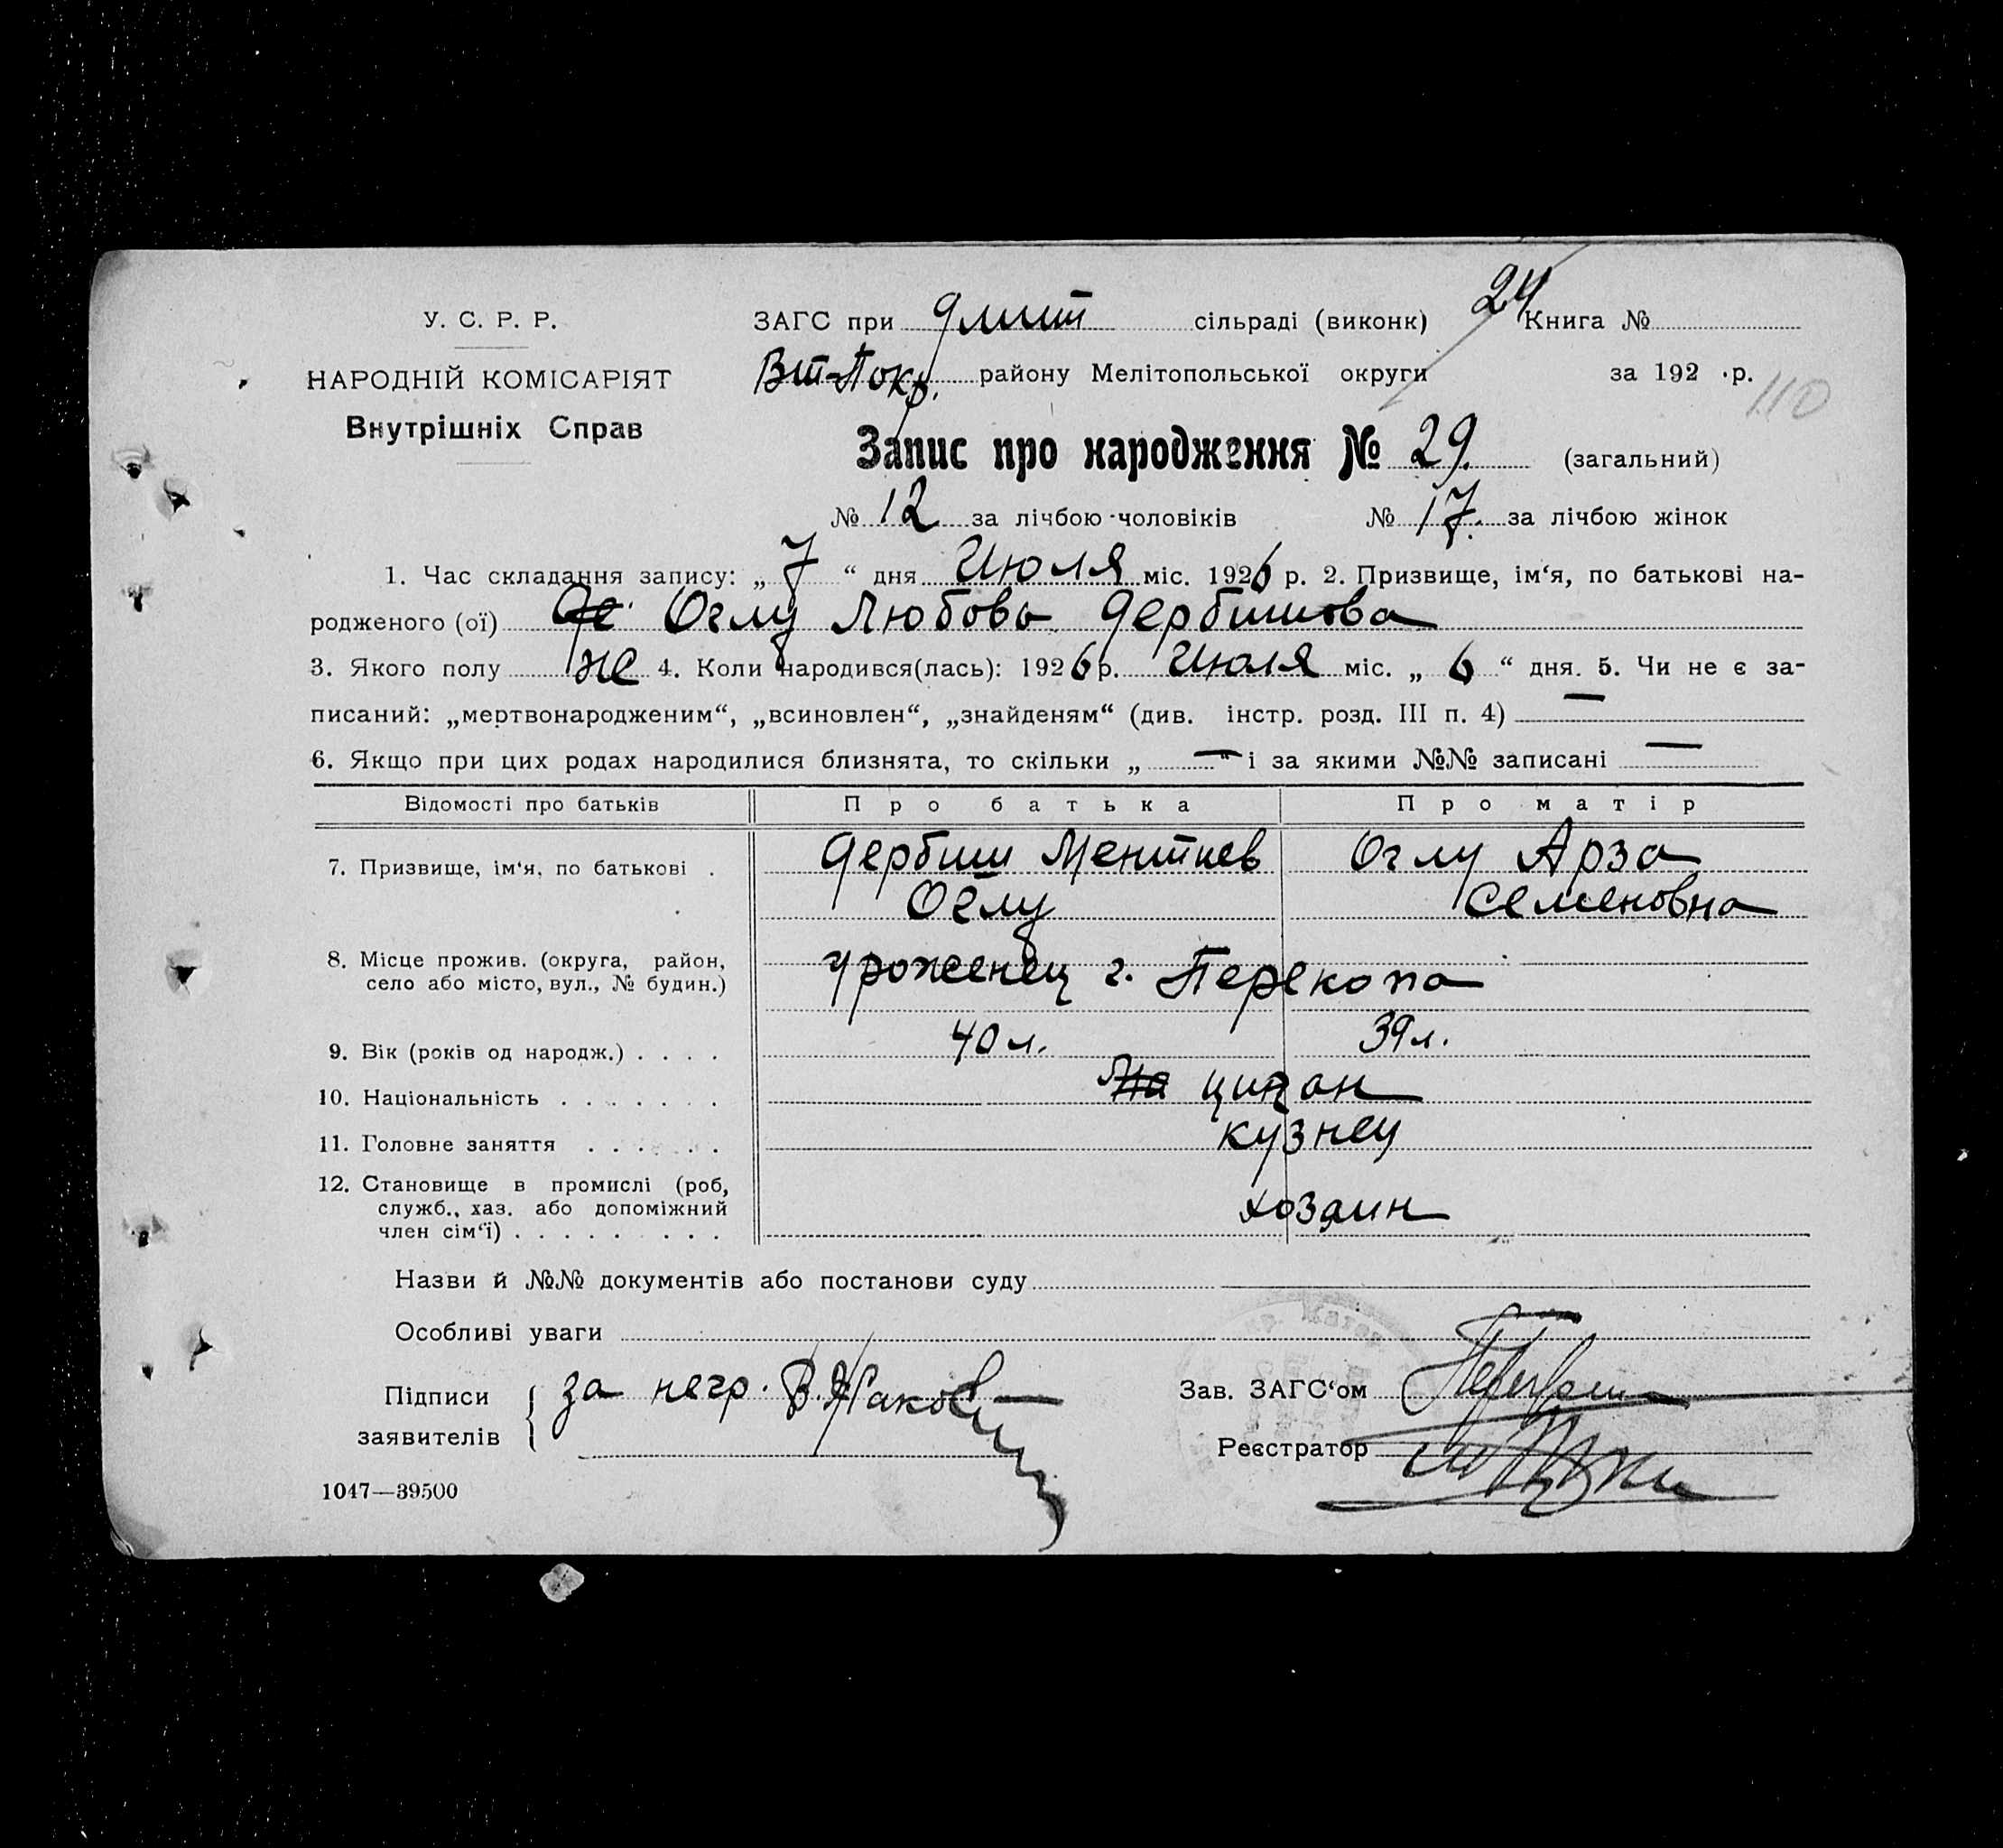 24
У. С. Р. Р.
ЗАГС при Дмит сільраді (виконк) Книга №
НАРОДНІЙ КОМІСАРІЯТ
Внутрішніх Справ
Вт-Покр. району Мелітопольської округи за 192 р.
110
Запис про народження № 29. (загальний)
№ 12 за лічбою чоловіків № 17. за лічбою жінок
1. Час складання запису: „ 7 “ дня Июля міс. 1926 р. 2. Призвище, ім‘я, по батькові на-
родженого (ої) Де Оглу Любовь Дербишова
3. Якого полу же 4. Коли народився(лась): 1926 р. Июля міс. „ 6 “ дня. 5. Чи не є за-
писаний: „мертвонародженим“, „всиновлен“, „знайденям“ (див. інстр. розд. III п. 4) —
6. Якщо при цих родах народилися близнята, то скільки „ — “ і за якими №№ записані —
Відомості про батьків Про батька Про матір
7. Призвище, ім‘я, по батькові . Дербиш Ментиев Оглу Арза
Оглу Семеновна
8. Місце прожив. (округа, район,
село або місто, вул., № будин.) уроженец г. Перекопа
9. Вік (років од народж.) . . . . 40 л. 39 л.
10. Національність . . . . . . . циган
11. Головне заняття . . . . . . кузнец
12. Становище в промислі (роб,
служб., хаз. або допоміжний
член сім‘ї) . . . . . . . . . хозяин
Назви й №№ документів або постанови суду
Особливі уваги
Підписи
заявителів
за негр.
Зав. ЗАГС‘ом
Реєстратор
1047—39500